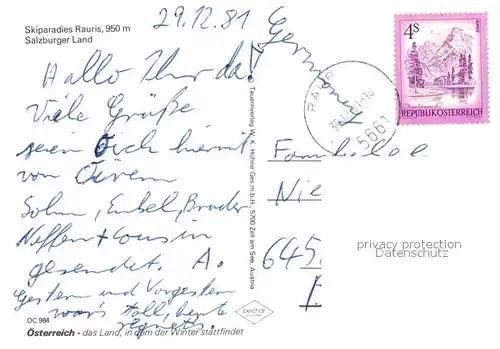 Skiparadies Rauris, 950 m
Salzburger Land
29.12.81
Germany
Hallo Ihr da!
Viele Grüße
seien Euch hiermit
von Eurem
Sohn, Enkel, Bruder
Neffen + Cousin
gesendet. A.
Gestern und Vorgestern
war's toll, heute
regnets.
OC 984
Österreich - das Land, in dem der Winter stattfindet
Tauernverlag W. K. Hühne Ges.m.b.H., 5700 Zell am See, Austria
bechar
4 S
REPUBLIK ÖSTERREICH
5661
Familie
Nie
645
privacy protection
Datenschutz